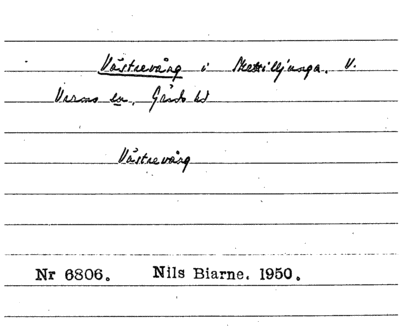 Västrevång i Mettiljunga. V.
Vrams sn. Gärds hd
Västrevång
Nr 6806. Nils Biarne. 1950.